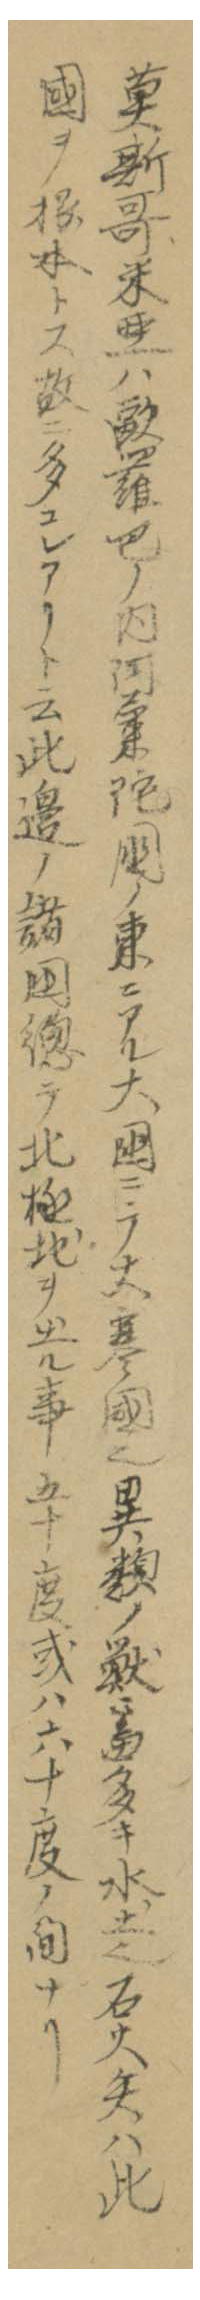 莫斯哥米亜ハ歐羅巴ノ内阿蘭陀國ノ東ニアル大国ニテ大寒國也異類ノ獣畜多キ水土也石火矢ハ此
國ヲ根本トス故ニ多コレアリト云此邉ノ諸国總テ北極地ヲ出ル事五十度或ハ六十度ノ間ナリ